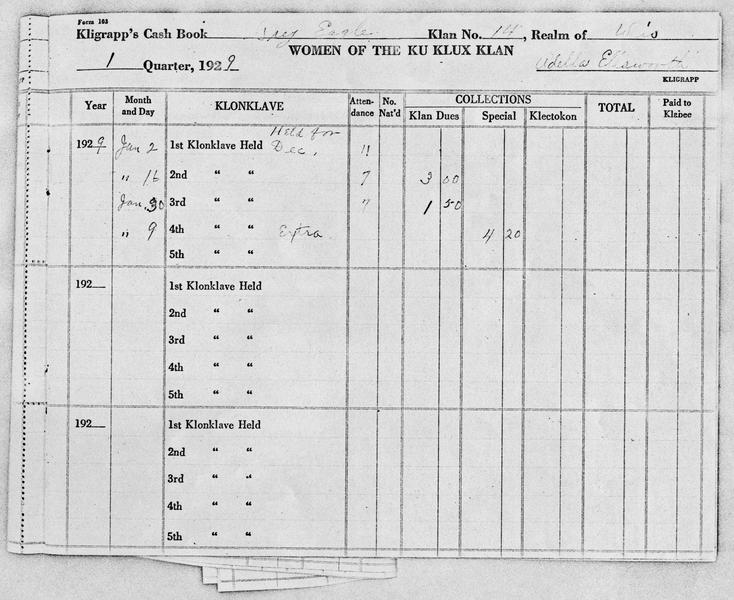 Form 103
Kligrapp's Cash Book Eagle Klan No. 14, Realm of Wis
WOMEN OF THE KU KLUX KLAN
1 Quarter, 1929 Adella Ellsworth
KLIGRAPP
Year Month and Day KLONKLAVE Attendance No. Nat'd COLLECTIONS TOTAL Paid to Klabee
Klan Dues Special Klectokon
Held for
1929 Jan 2 1st Klonklave Held Dec. 11
" 16 2nd " " 7 3 00
Jan. 30 3rd " " 7 1 50
" 9 4th " " Extra 4 20
5th " "
192 1st Klonklave Held
2nd " "
3rd " "
4th " "
5th " "
192 1st Klonklave Held
2nd " "
3rd " "
4th " "
5th " "